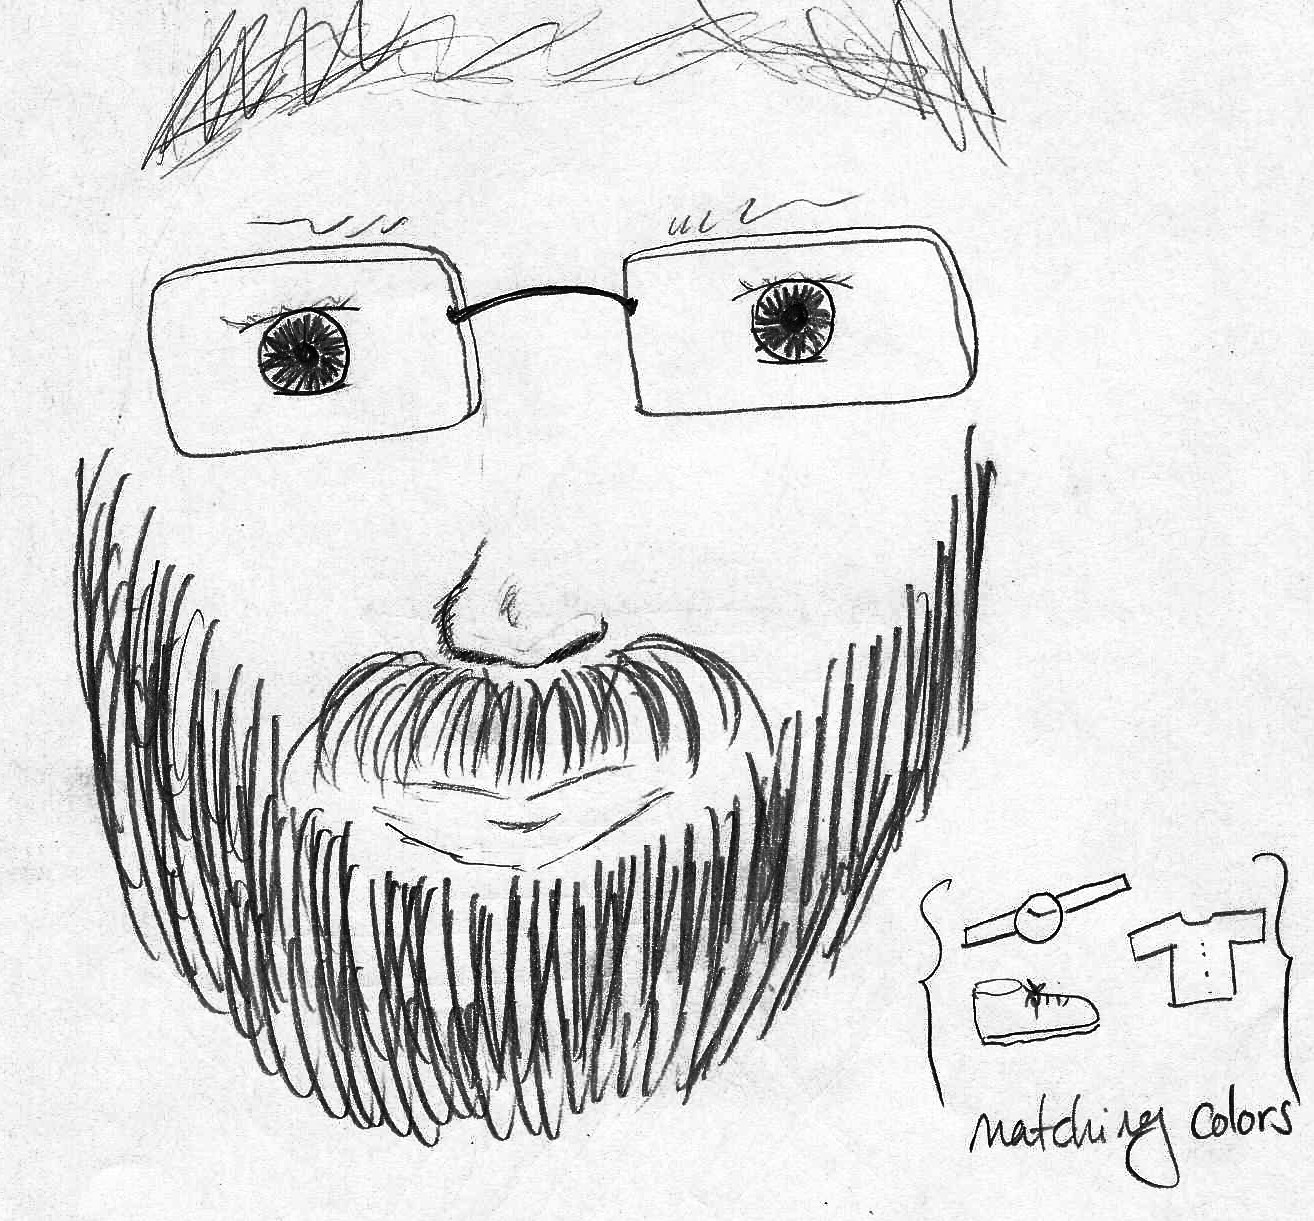 matching colors